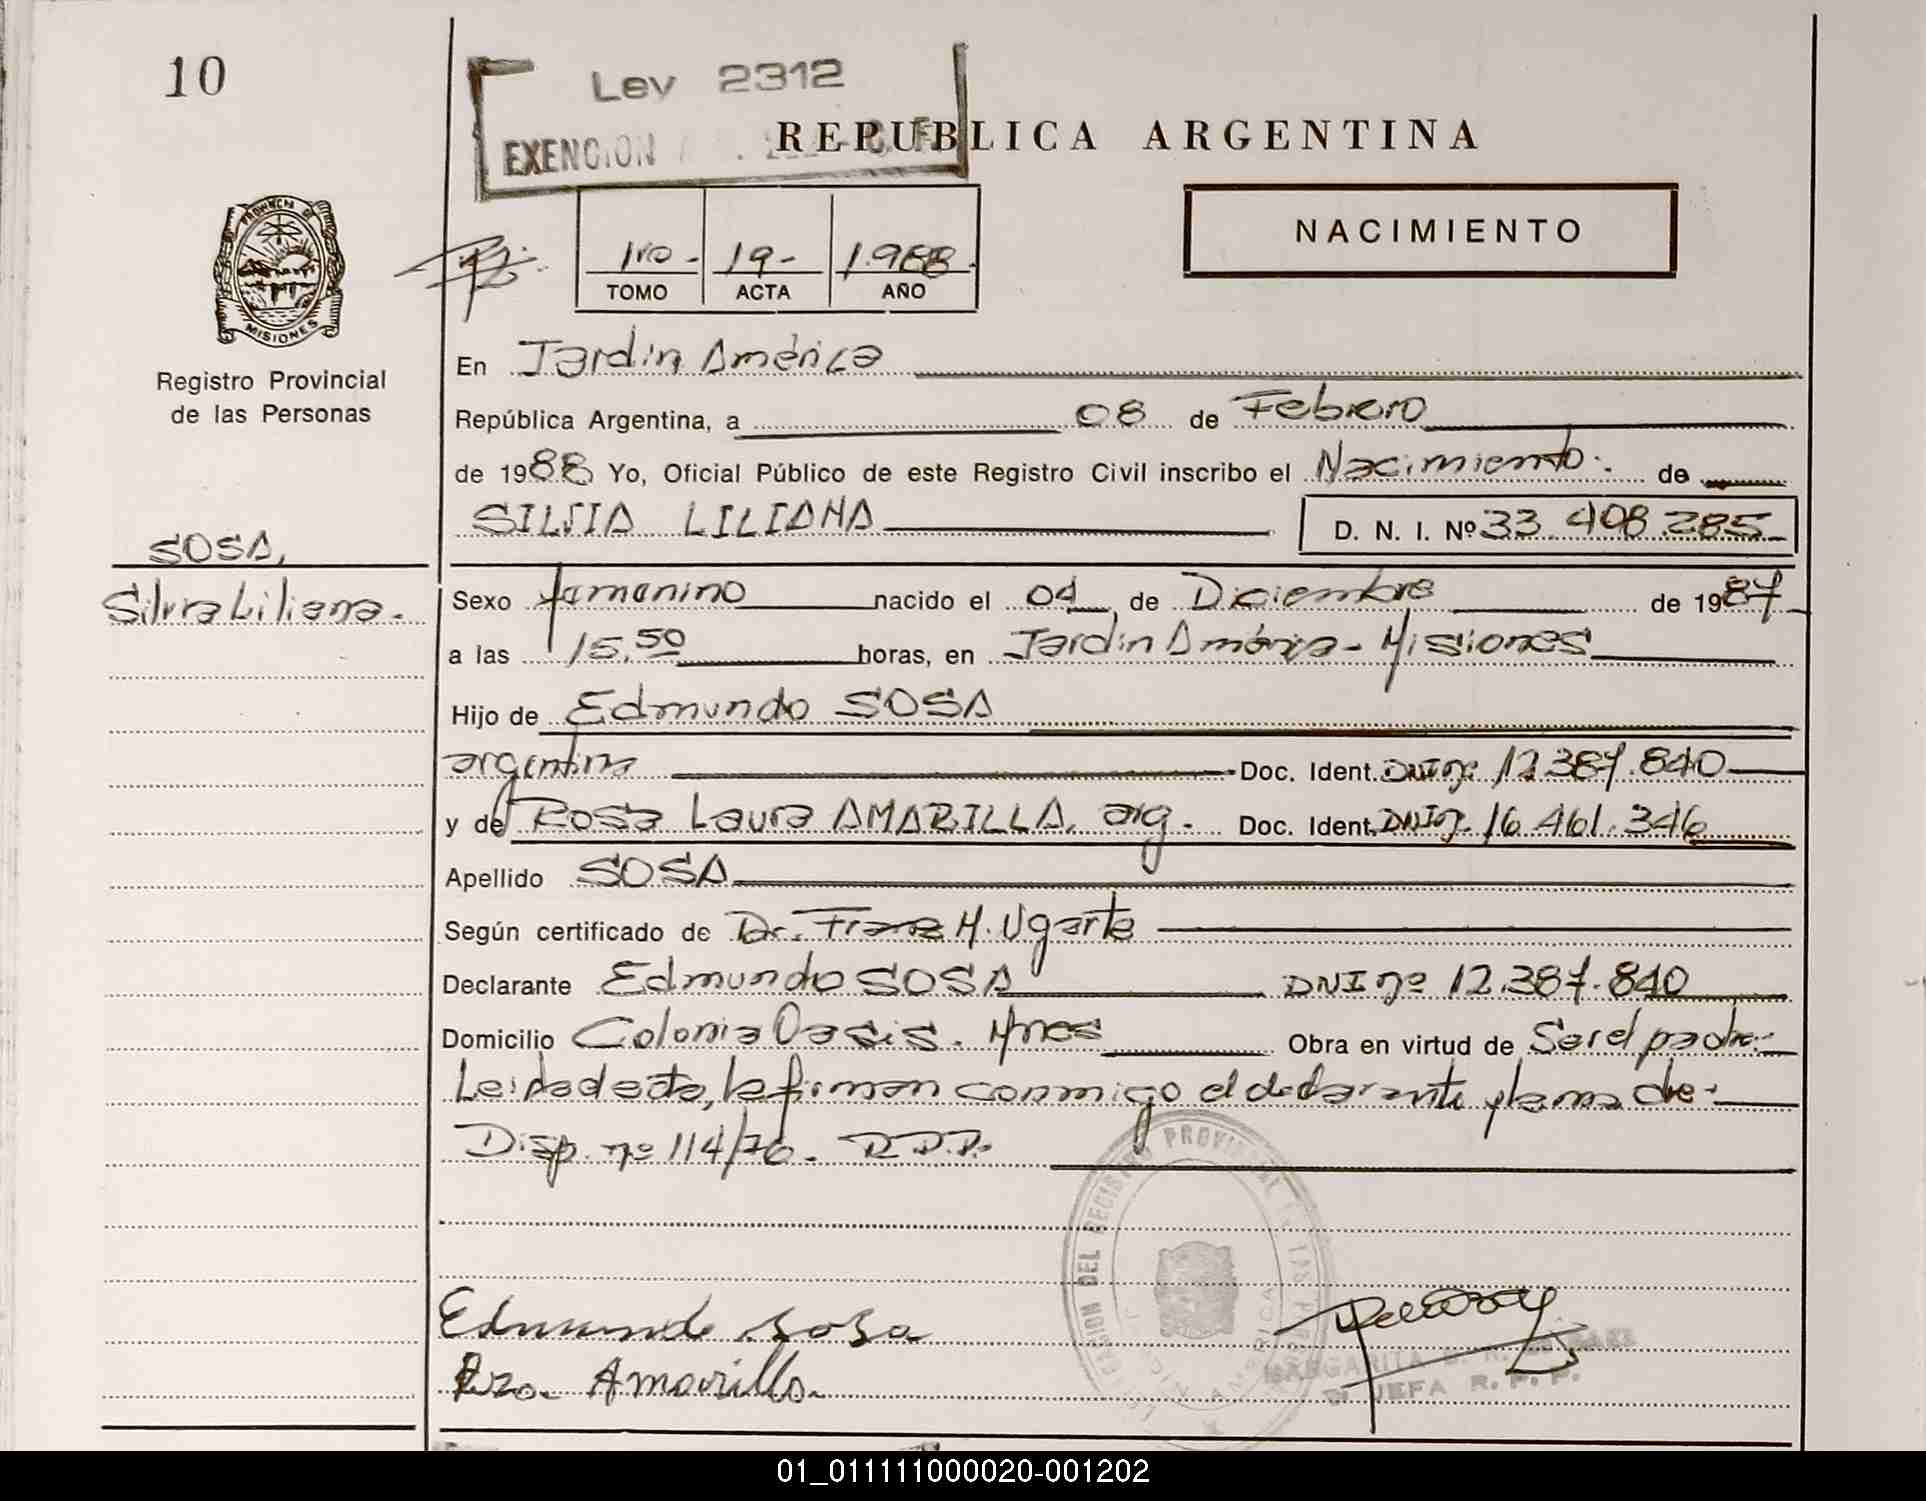 10
Ley 2312
EXENCION
REPUBLICA ARGENTINA
NACIMIENTO
1ro- 19- 1.988.
TOMO ACTA AÑO
PROVINCIA DE
MISIONES
Registro Provincial
de las Personas
En Jardin América
República Argentina, a 08 de Febrero
de 1988 Yo, Oficial Público de este Registro Civil inscribo el Nacimiento. de
SILVIA LILIANA D. N. I. Nº 33.408.285
SOSA,
Silvia Liliana.
Sexo femenino nacido el 04 de Diciembre de 1987
a las 15,50 horas, en Jardin América - Misiones
Hijo de Edmundo SOSA
argentina Doc. Ident. DNI nº 12.387.840
y de Rosa Laura AMARILLA, arg. Doc. Ident. DNI nº 16.461.346
Apellido SOSA
Según certificado de Dr. Franz M. Ugarte
Declarante Edmundo SOSA DNI nº 12.387.840
Domicilio Colonia Oasis. Mnes Obra en virtud de Ser el padre.
Leida el acta, la firman conmigo el declarante y la madre.
Disp. nº 114/76. R.D.P.
Edmundo Sosa
Amarilla
MARGARITA
JEFA R. P. P.
01_011111000020-001202